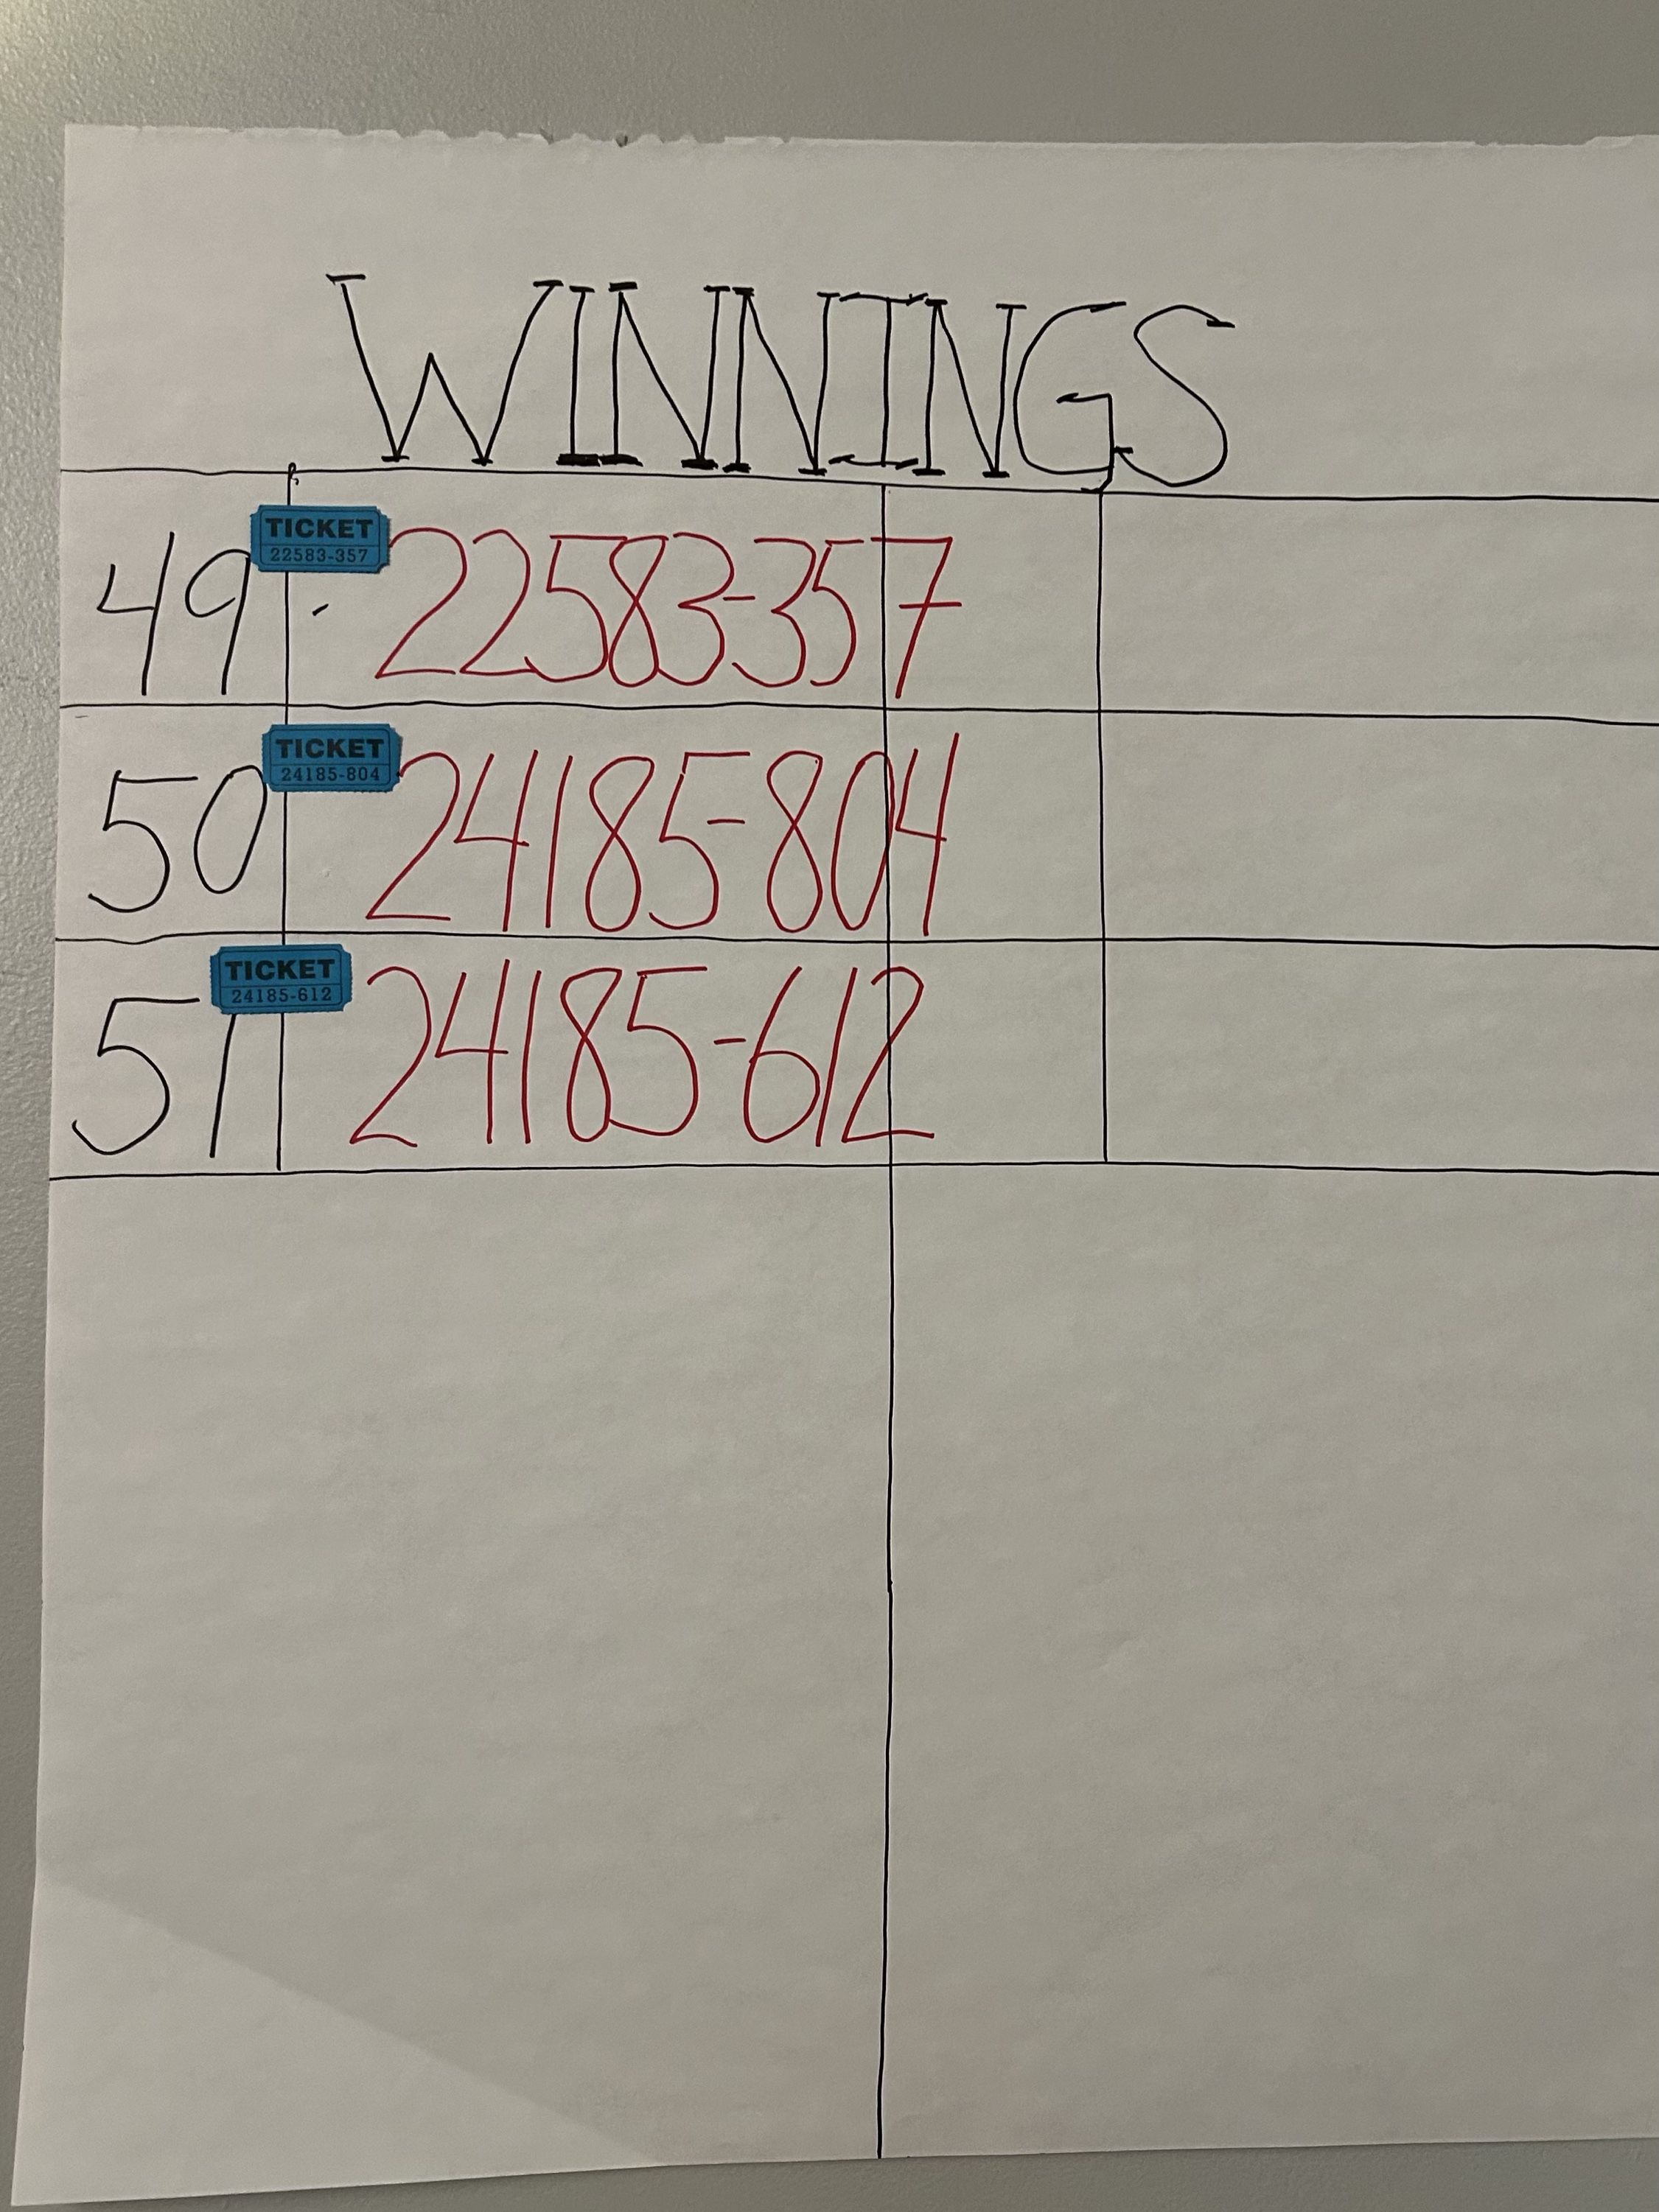 WINNINGS
49 TICKET 22583-357 22583-357
50 TICKET 24185-804 24185-804
51 TICKET 24185-612 24185-612